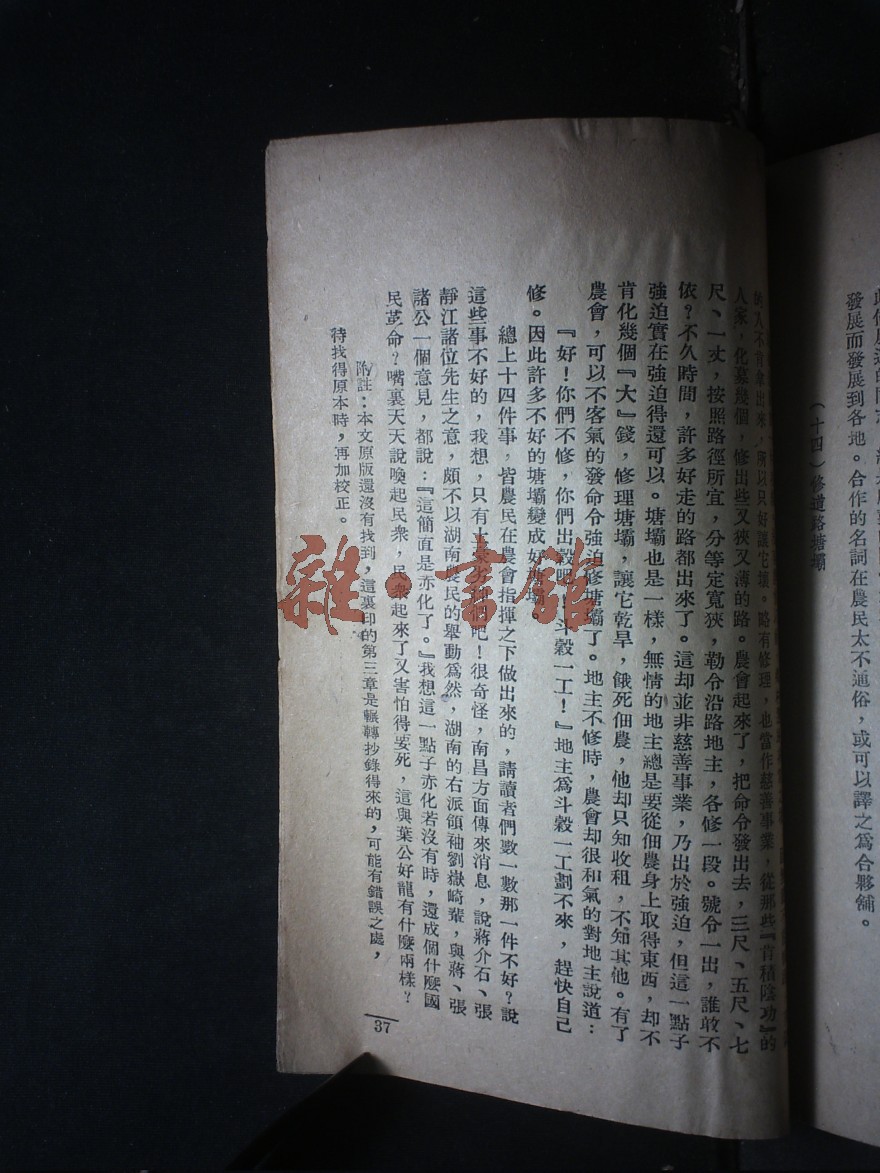 發展而發展到各地。合作的名詞在農民太不通俗，或可以譯之爲合夥舖。
（十四）修道路塘壩
人不肯拿出來，所以只好讓它壞。略有修理，也當作慈善事業，從那些『肯積陰功』的
人家，化募幾個，修出些又狹又薄的路。農會起來了，把命令發出去，三尺、五尺、七
尺、一丈，按照路徑所宜，分等定寬狹，勒令沿路地主，各修一段。號令一出，誰敢不
依？不久時間，許多好走的路都出來了。這却並非慈善事業，乃出於強迫，但這一點子
強迫實在強迫得還可以。塘壩也是一樣，無情的地主總是要從佃農身上取得東西，却不
肯化幾個『大』錢，修理塘壩，讓它乾旱，餓死佃農，他却只知收租，不知其他。有了
農會，可以不客氣的發命令強迫修塘壩了。地主不修時，農會却很和氣的對地主說道：
『好！你們不修，你們出穀吧，斗穀一工！』地主爲斗穀一工劃不來，趕快自己
修。因此許多不好的塘壩變成好塘壩。
總上十四件事，皆農民在農會指揮之下做出來的，請讀者們數一數那一件不好？說
這些事不好的，我想，只有土豪劣紳們吧！很奇怪，南昌方面傳來消息，說蔣介石、張
靜江諸位先生之意，頗不以湖南農民的舉動爲然，湖南的右派領袖劉嶽崎輩，與蔣、張
諸公一個意見，都說：『這簡直是赤化了。』我想這一點子赤化若沒有時，還成個什麼國
民革命？嘴裏天天說喚起民衆，民衆起來了又害怕得要死，這與葉公好龍有什麼兩樣？
附註：本文原版還沒有找到，這裏印的第三章是輾轉抄錄得來的，可能有錯誤之處，
待找得原本時，再加校正。
37
雜·書館